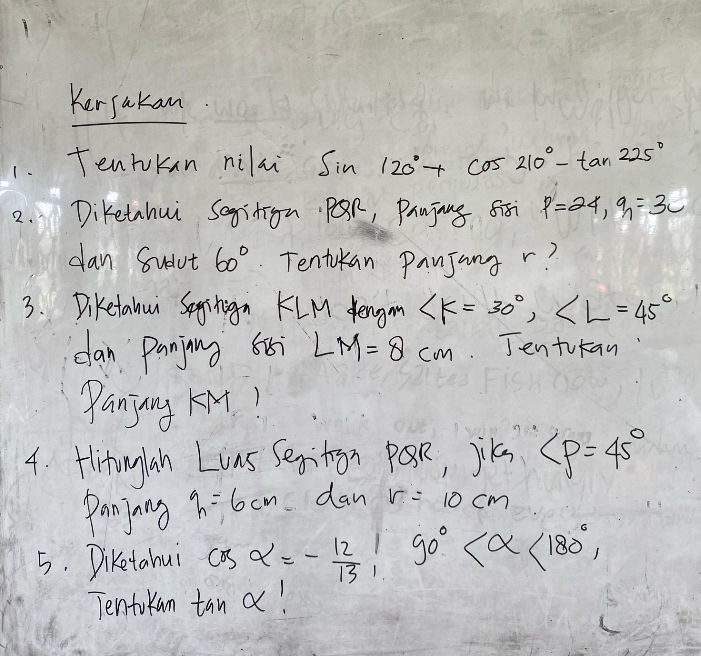 Kerjakan.
1. Tentukan nilai Sin 120° + cos 210° - tan 225°
2. Diketahui Segitiga PQR, Panjang sisi P=24, q=30
dan Sudut 60°. Tentukan Panjang r?
3. Diketahui Segitiga KLM dengan <K = 30°, <L = 45°
dan Panjang sisi LM = 8 cm. Tentukan
Panjang KM!
4. Hitunglah Luas Segitiga PQR, jika <P = 45°
Panjang q = 6 cm dan r = 10 cm
5. Diketahui cos α = - 12/13, 90° < α < 180°,
Tentukan tan α!